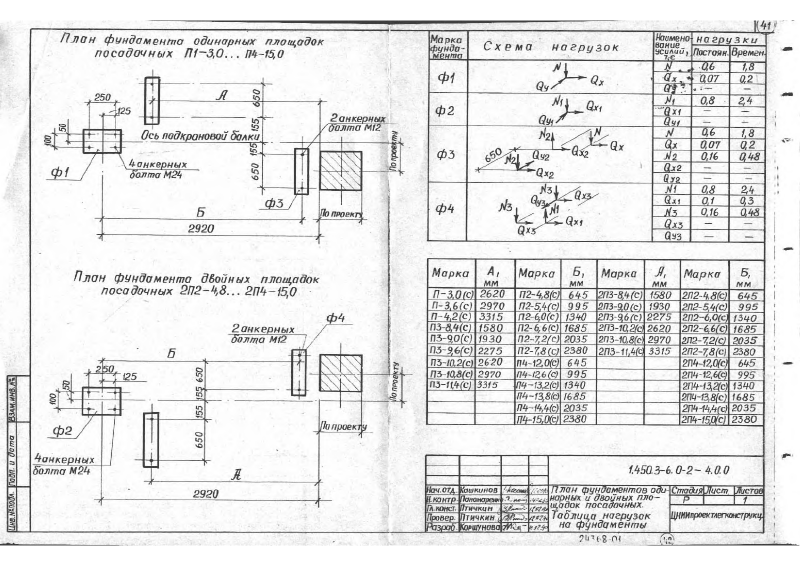 41
План фундамента одинарных площадок
посадочных П1-3,0... П4-15,0
А
250
125
650
155
50
100
Ось подкрановой балки
2 анкерных
болта М12
4 анкерных
болта М24
155
650
Ф1
Ф3
По проекту
По проекту
Б
2920
План фундамента двойных площадок
посадочных 2П2-4,8... 2П4-15,0
Ф4
2 анкерных
болта М12
Б
250
125
50
100
650
155
155
650
По проекту
По проекту
Ф2
4 анкерных
болта М24
А
2920
Марка фунда-мента Схема нагрузок Наимено-вание усилий, тс Нагрузки
Постоян. Времен.
Ф1 N Qy Qx N 0,6 1,8
Qx 0,07 0,2
Qy — —
Ф2 N1 Qy1 Qx1 N1 0,8 2,4
Qx1 — —
Qy1 — —
Ф3 650 N2 N Qy2 Qx2 Qx N2 Qx2 N 0,6 1,8
Qx 0,07 0,2
N2 0,16 0,48
Qx2 — —
Qy2 — —
Ф4 N3 Qx3 Qy3 N3 N1 Qx3 Qx1 N1 0,8 2,4
Qx1 0,1 0,3
N3 0,16 0,48
Qx3 — —
Qy3 — —
Марка А, мм Марка Б, мм Марка А, мм Марка Б, мм
П-3,0(с) 2620 П2-4,8(с) 645 2П3-8,4(с) 1580 2П2-4,8(с) 645
П-3,6(с) 2970 П2-5,4(с) 995 2П3-9,0(с) 1930 2П2-5,4(с) 995
П-4,2(с) 3315 П2-6,0(с) 1340 2П3-9,6(с) 2275 2П2-6,0(с) 1340
П3-8,4(с) 1580 П2-6,6(с) 1685 2П3-10,2(с) 2620 2П2-6,6(с) 1685
П3-9,0(с) 1930 П2-7,2(с) 2035 2П3-10,8(с) 2970 2П2-7,2(с) 2035
П3-9,6(с) 2275 П2-7,8(с) 2380 2П3-11,4(с) 3315 2П2-7,8(с) 2380
П3-10,2(с) 2620 П4-12,0(с) 645 2П4-12,0(с) 645
П3-10,8(с) 2970 П4-12,6(с) 995 2П4-12,6(с) 995
П3-11,4(с) 3315 П4-13,2(с) 1340 2П4-13,2(с) 1340
П4-13,8(с) 1685 2П4-13,8(с) 1685
П4-14,4(с) 2035 2П4-14,4(с) 2035
П4-15,0(с) 2380 2П4-15,0(с) 2380
1.450.3-6.0-2-4.0.0
Нач.отд. Кашкинов
Н.контр. Пономаренко
Гл.конст. Птичкин
Провер. Птичкин
Разраб. Коршунова
План фундаментов оди-
нарных и двойных пло-
щадок посадочных.
Таблица нагрузок
на фундаменты
Стадия Лист Листов
Р 1
ЦНИИпроектлегконструкц.
Инв.№ подл. Подп. и дата Взам.инв.№